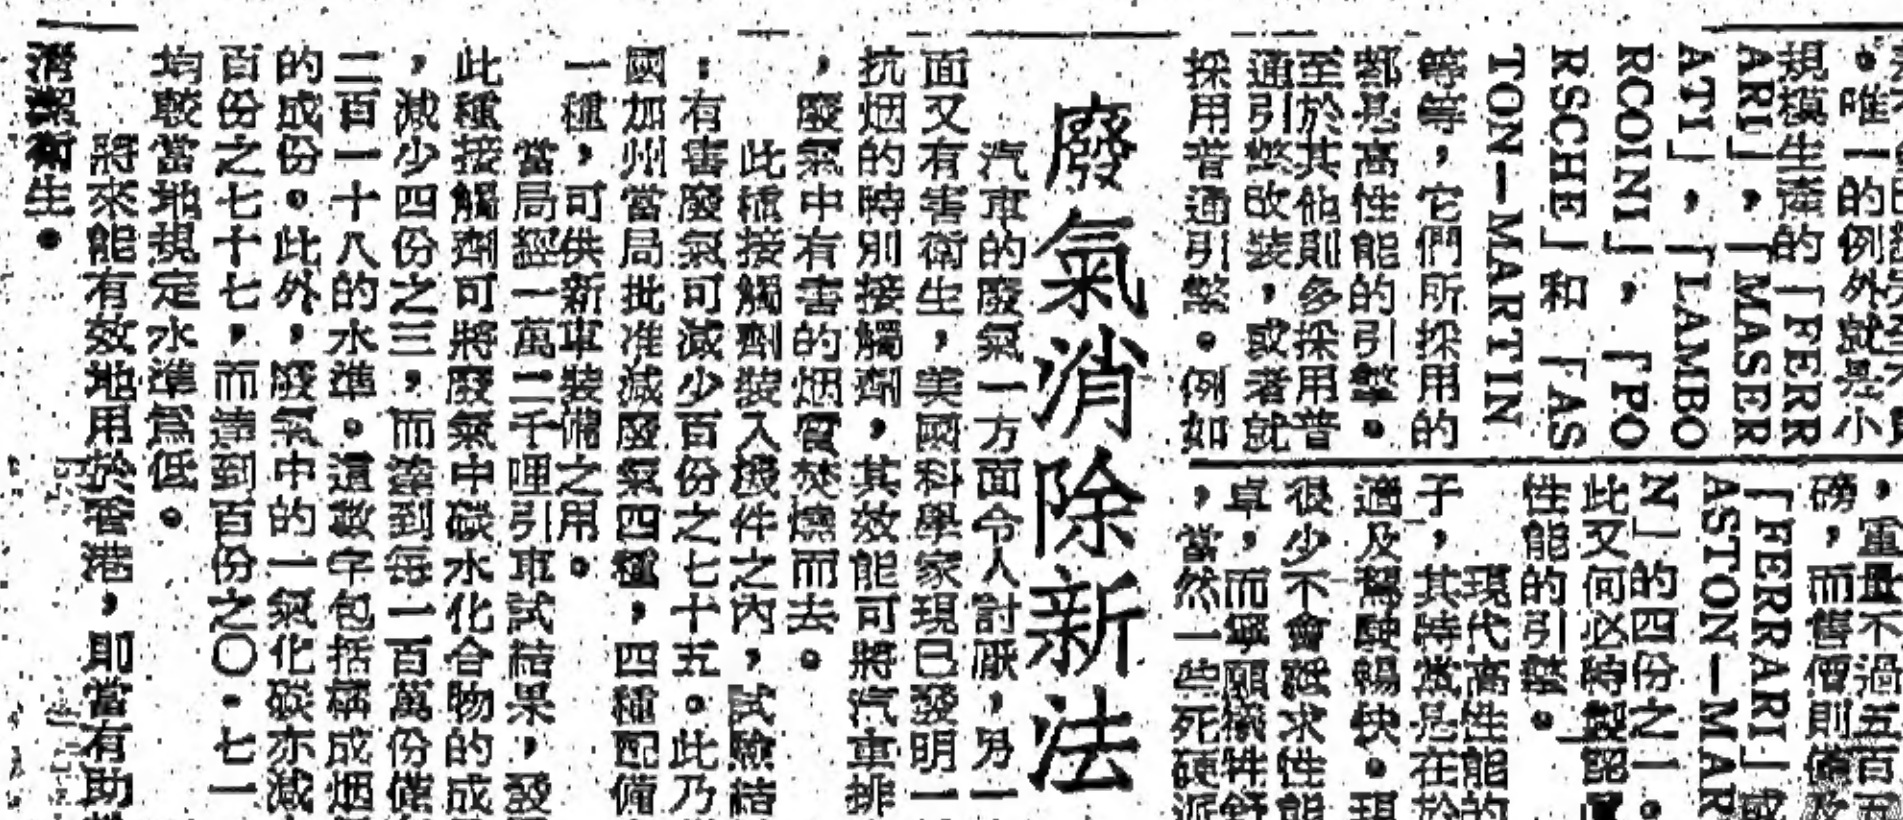 。唯一的例外就是小
規模生產的「FERR
ARI」，「MASER
ATI」，「LAMBO
RCOINI」，「PO
RSCHE」和「AS
TON—MARTIN
等等，它們所採用的
都是高性能的引擎。
至於其他則多採用普
通引擎改裝，或者就
採用普通引擎。例如
，重量不過五百五
磅，而售價則僅及
「FERRARI」或
ASTON—MAR
N」的四份之一。
此又何必時製認
性能的引擎。
現代高性能的
子，其特點是在於
適及駕駛暢快。現
很少不會祗求性能
卓，而寧願犧牲舒
，當然一些死硬派
廢氣消除新法
汽車的廢氣一方面令人討厭，另一
面又有害衛生，美國科學家現已發明一
抗烟的特別接觸劑，其效能可將汽車排
，廢氣中有害的烟質焚燒而去。
此種接觸劑裝入機件之內，試驗結
：有害廢氣可減少百份之七十五。此乃
國加州當局批准減廢氣四種，四種配備
一種，可供新車裝備之用。
當局經一萬二千哩引車試結果，發
此種接觸劑可將廢氣中碳水化合物的成
，減少四份之三，而達到每一百萬份僅
二百一十八的水準。這數字包括稱成烟
的成份。此外，廢氣中的一氧化碳亦減
百份之七十七，而達到百份之〇・七一
均較當地規定水準為低。
將來能有效地用於香港，即當有助
清潔衛生。